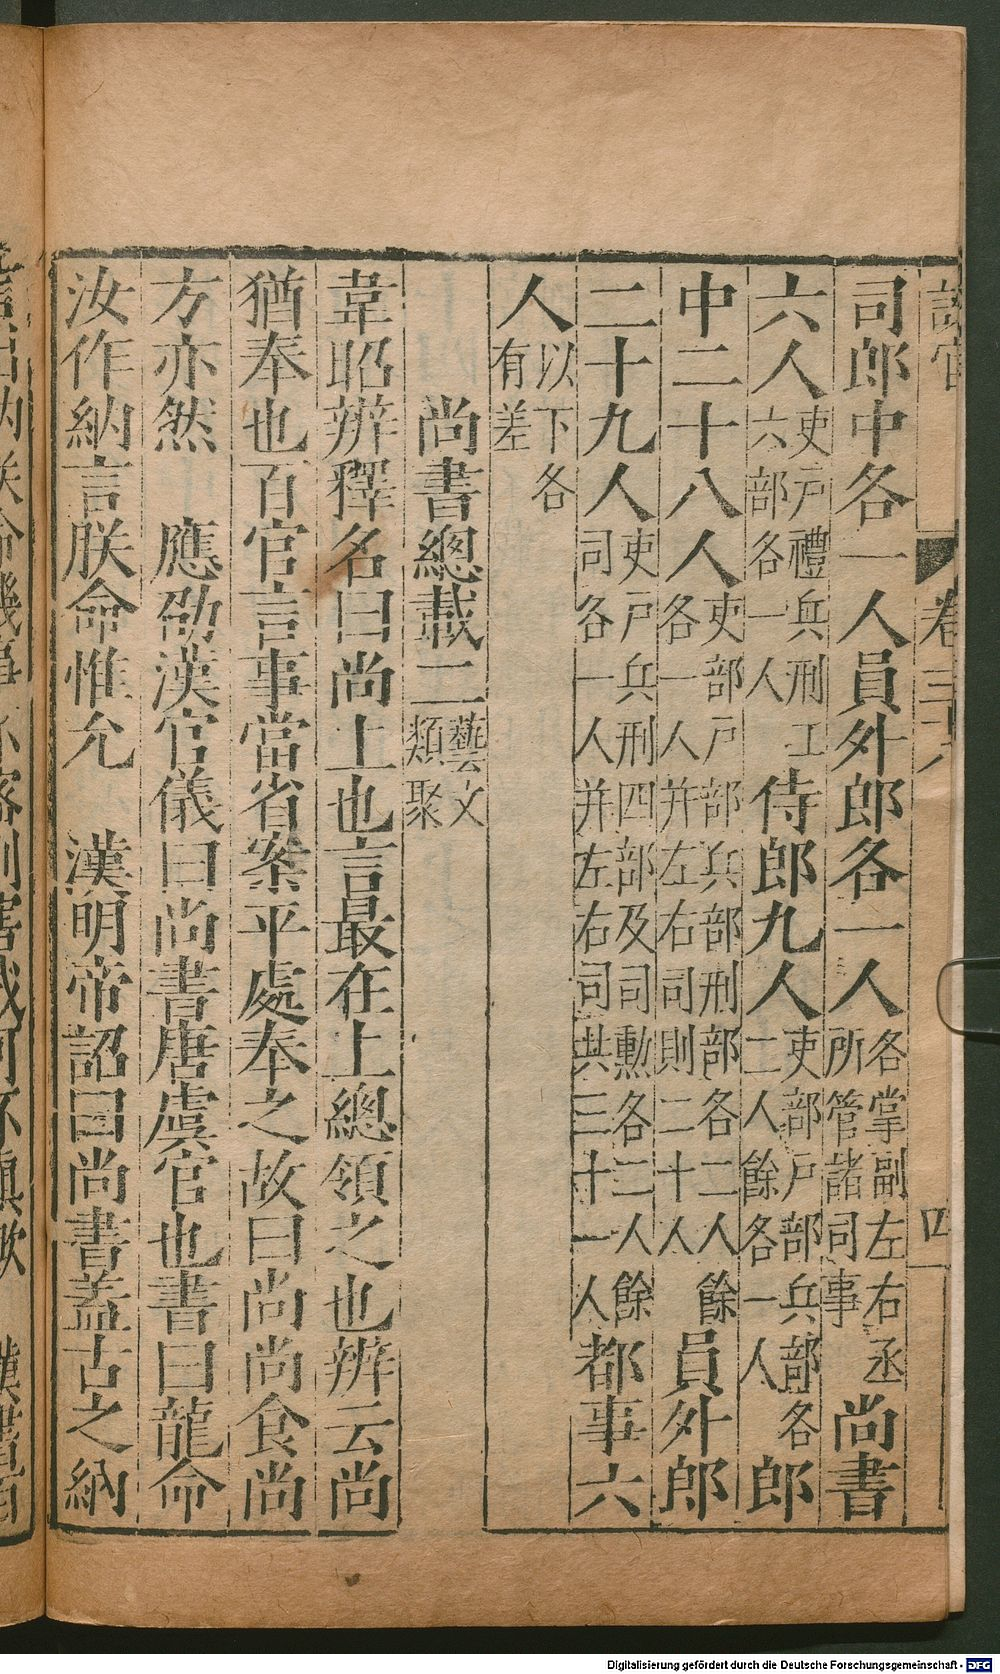 設官
卷三十八
四
司郎中各一人員外郎各一人各掌副左右丞所管諸司事尚書
六人吏戶禮兵刑工六部各一人侍郎九人吏部戶部兵部各二人餘各一人郎
中二十八人吏部戶部兵部刑部各二人餘各一人并左右司則二十人員外郎
二十九人吏戶兵刑四部及司勳各二人餘司各一人并左右司共三十一人都事六
人以下各有差
尚書總載二藝文類聚
韋昭辨釋名曰尚上也言最在上總領之也辨云尚
猶奉也百官言事當省案平處奉之故曰尚尚食尚
方亦然 應劭漢官儀曰尚書唐虞官也書曰龍命
汝作納言朕命惟允 漢明帝詔曰尚書蓋古之納
Digitalisierung gefördert durch die Deutsche Forschungsgemeinschaft - DFG